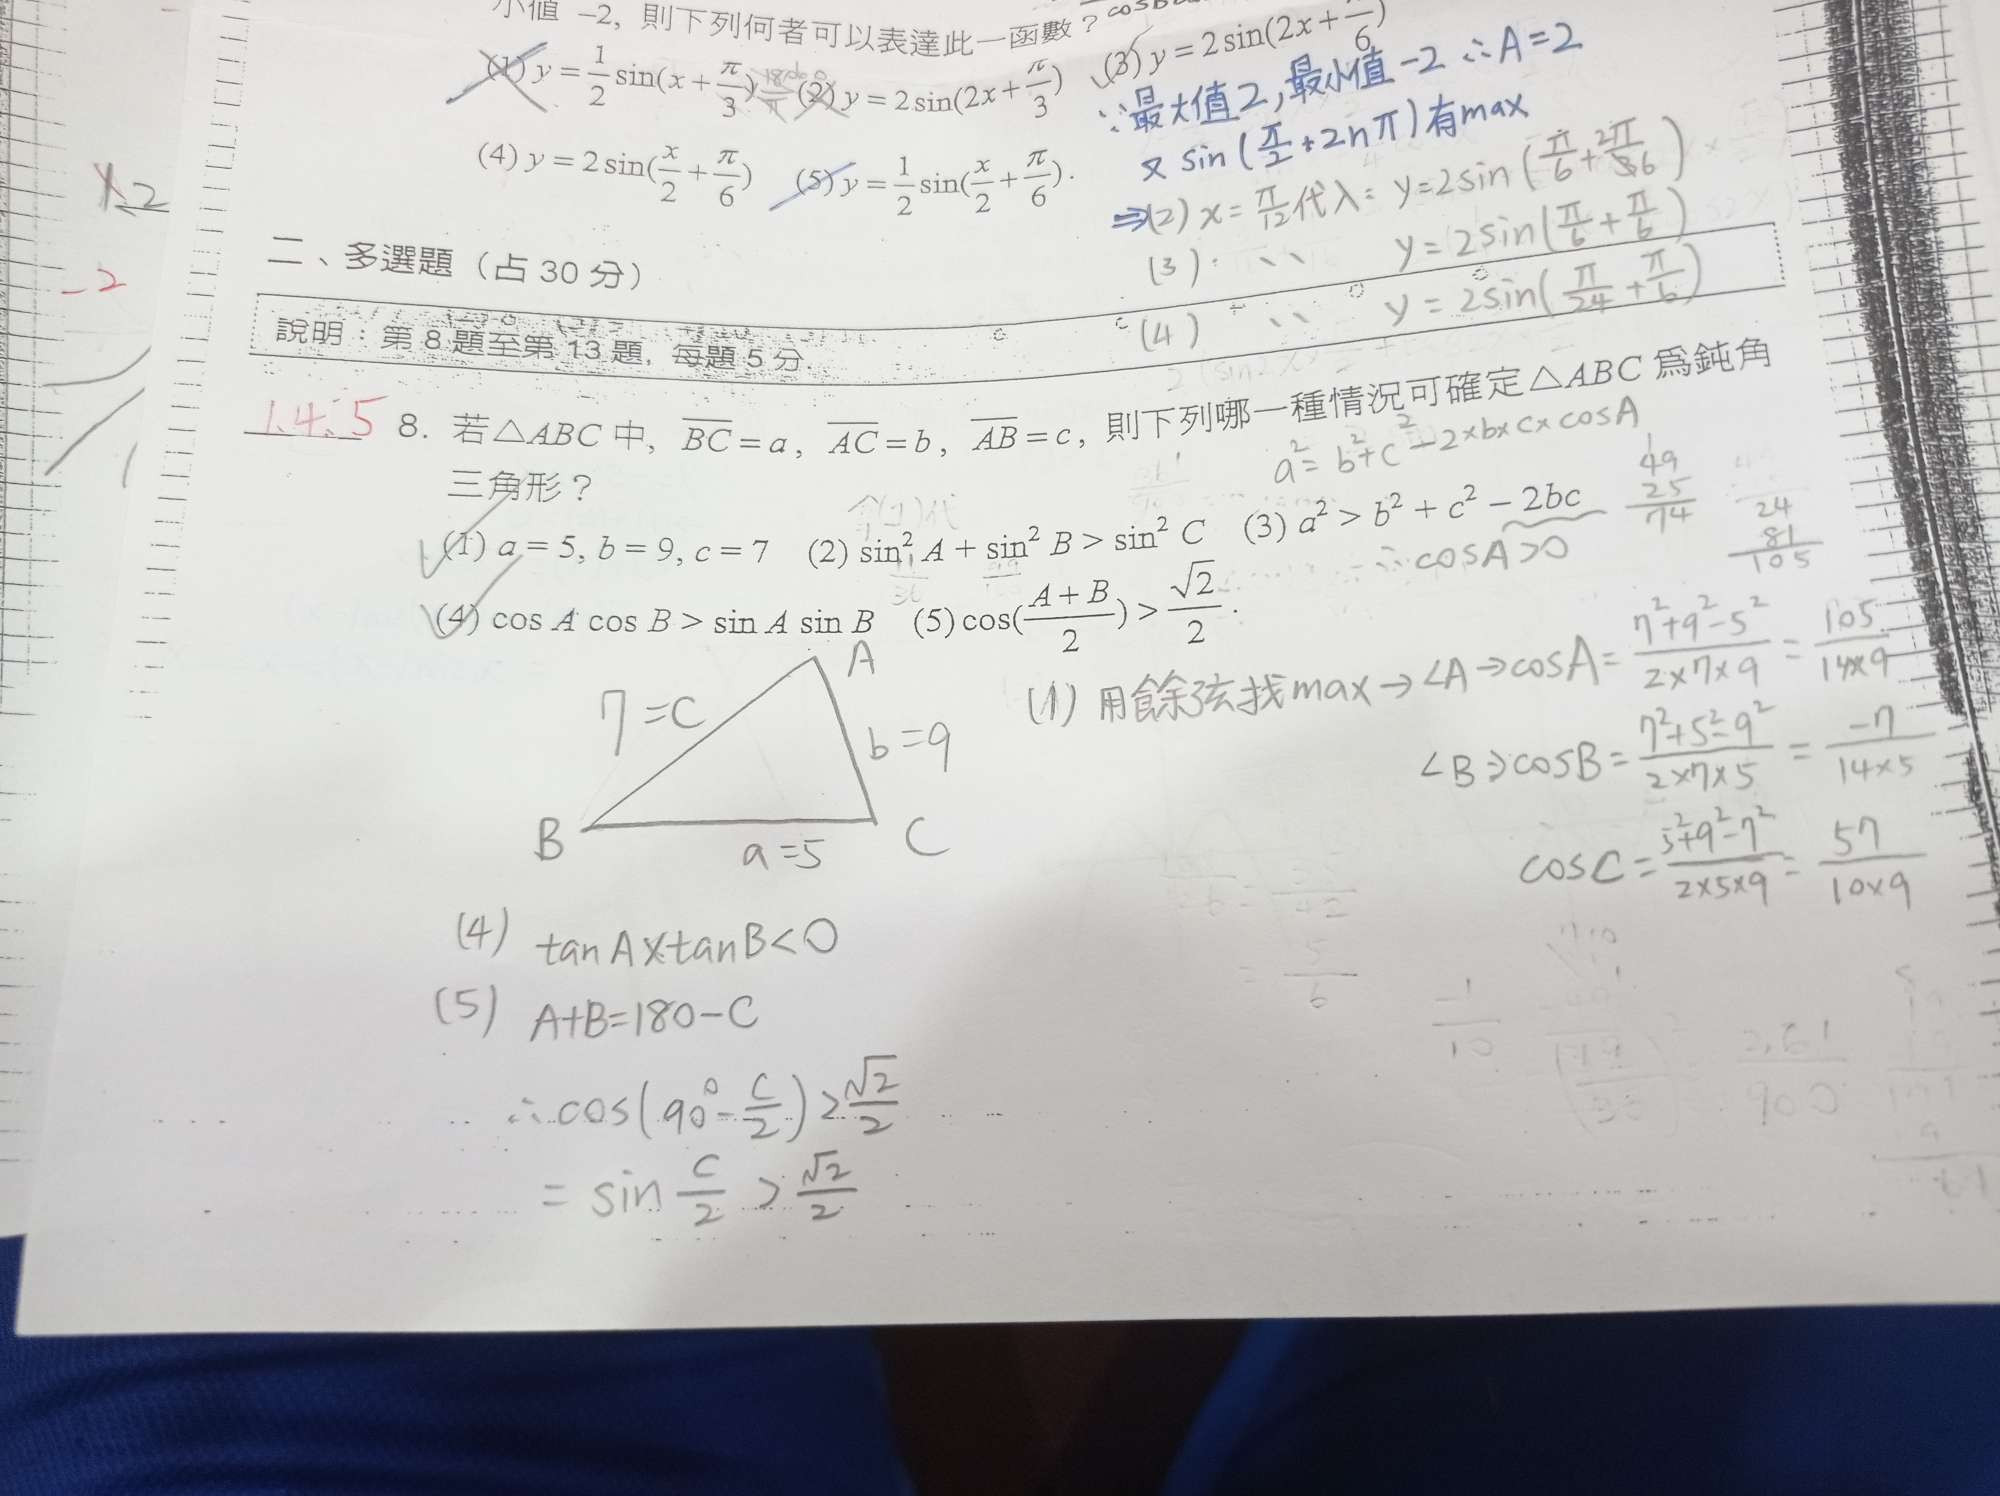 小值 -2, 則下列何者可以表達此一函數？
(1) y = 1/2 sin(x + π/3) (2) y = 2 sin(2x + π/3) (3) y = 2 sin(2x + π/6)
∵最大值2, 最小值 -2 ∴A=2
(4) y = 2 sin(x/2 + π/6) (5) y = 1/2 sin(x/2 + π/6).
又 sin(π/2 + 2nπ)有max
⇒(2) x = π/12 代入: y=2sin(π/6 + 2π/6)
(3) 〃 y = 2sin(π/6 + π/6)
(4) 〃 y = 2sin(π/24 + π/6)
2
-2
二、多選題（占 30 分）
說明：第 8 題至第 13 題，每題 5 分.
1.4.5 8. 若△ABC 中, BC = a, AC = b, AB = c, 則下列哪一種情況可確定△ABC 為鈍角
三角形？
a² = b²+c²-2×b×c×cosA
(1) a = 5, b = 9, c = 7 (2) sin² A + sin² B > sin² C (3) a² > b² + c² - 2bc
∴cosA>0
49
25
74
24
81
105
(4) cos A cos B > sin A sin B (5) cos((A + B)/2) > √2/2.
A
7=C
b=9
B
a=5
C
(1) 用餘弦找max→∠A→cosA= (7²+9²-5²)/(2×7×9) = 105/(14×9)
∠B⇒cosB= (7²+5²-9²)/(2×7×5) = -7/(14×5)
cosC= (5²+9²-7²)/(2×5×9) = 57/(10×9)
(4) tanA×tanB<0
(5) A+B=180-C
∴cos(90°-C/2)>√2/2
= sin C/2 > √2/2